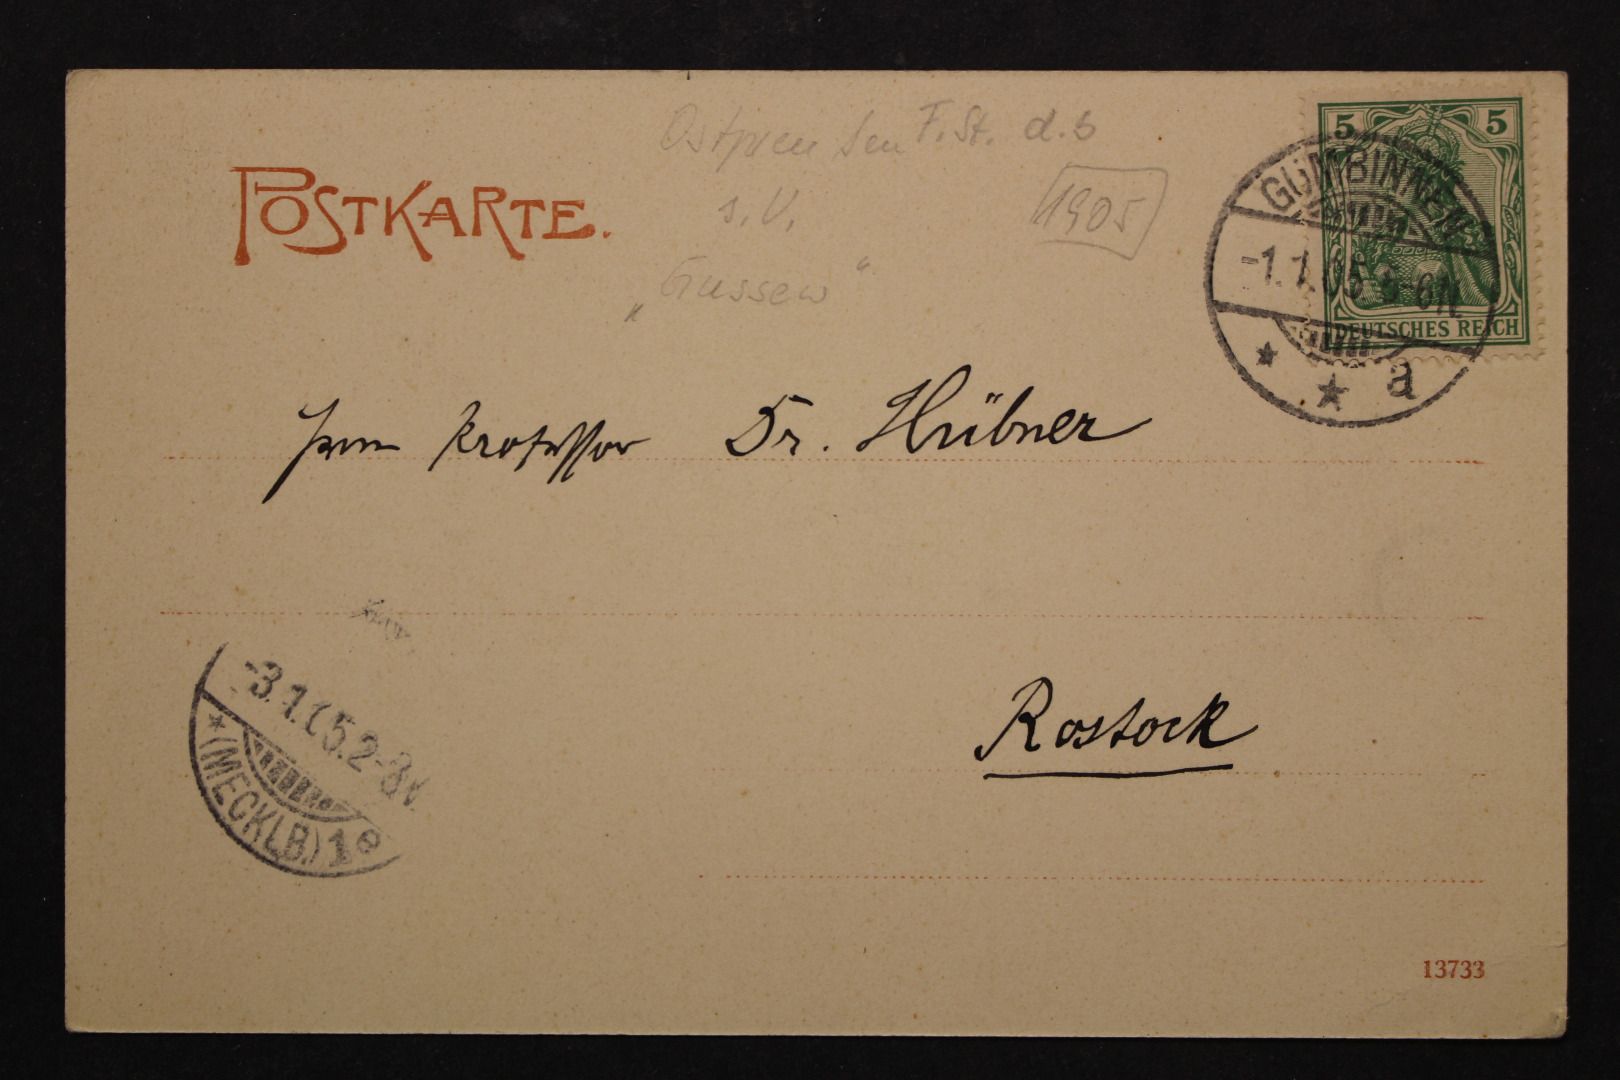 POSTKARTE.
Ostpreußen F. St. d. b
s. V.
„Gussew“
1905
5 5
DEUTSCHES REICH
GUMBINNEN
-1.1.05 5-6N.
* * a
Herrn Professor Dr. Hübner
Rostock
-3.1.05.2-3V.
* (MECKLB.) 1 e
13733